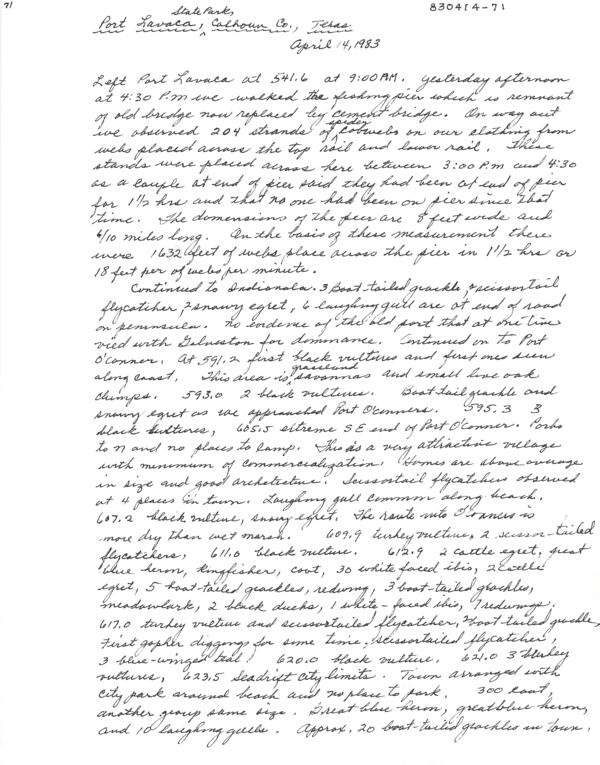 71
830414-71
State Park,
Port Lavaca, Calhoun Co., Texas
April 14, 1983
Left Port Lavaca at 541.6 at 9:00 AM. Yesterday afternoon
at 4:30 P.M we walked the fishing pier which is remnant
of old bridge now replaced by cement bridge. On way out
we observed 204 strands of spider cobwebs on our clothing from
webs placed across the top rail and lower rail. These
stands were placed across here between 3:00 P.m and 4:30
as a couple at end of pier said they had been at end of pier
for 1 1/2 hrs and that no one had been on pier since that
time. The domensions of the peer are 8 feet wide and
6/10 miles long. On the basis of these measurement there
were 1632 feet of webs place across the pier in 1 1/2 hrs or
18 feet per of webs per minute.
Continued to Indianola. 3 Boat-tailed grackle, scissortail
flycatcher, 7 snowy egret, 6 laughing gull are at end of road
on peninsula. No evidence of the old port that at one time
vied with Galveston for dominance. Continued on to Port
O'Connor. At 591.2 first black vultures and first one seen
along coast. This area is grassland savannas and small live oak
clumps. 593.0 2 black vultures. Boat tail grackle and
snowy egret as we approached Port O'Conners. 595.3 3
black vultures, 605.5 extreme SE end of Port O'Connor.
to n and no places to camp. This is a very attractive village
with minimum of commercialization. Homes are above average
in size and good archetecture. Scissortail flycatchers observed
at 4 places in town. Laughing gull common along beach.
607.2 black vulture, snowy egret. The route into O'Conners is
more dry than wet marsh. 609.9 turkey vulture, 2 scissor-tailed
flycatchers, 611.0 black vulture. 612.9 2 cattle egret, great
blue heron, kingfisher, coot, 30 white faced ibis, 2 cattle
egret, 5 boat-tailed grackles, redwing, 3 boat-tailed grackles,
meadowlark, 2 black ducks, 1 white-faced ibis, 7 redwings.
617.0 turkey vulture and scissortailed flycatcher, boat-tailed grackle,
First gopher diggings for some time, scissortailed flycatcher,
3 blue-winged teal. 620.0 black vulture. 621.0 3 turkey
vultures, 623.5 Seadrift city limits. Town arranged with
city park around beach and no place to park. 300 coot,
another group same size. Great blue heron, great blue heron,
and 10 laughing gulls. Approx. 20 boat-tailed grackles in town.